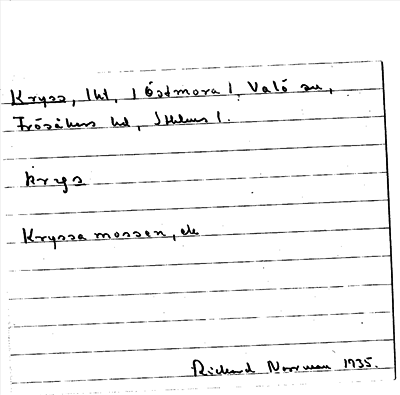 Kryss, 1 ht, i Östmora l, Valö sn,
Frösåkers hd, Sthlms l.
krys
Kryssamossen, ek
Richard Norrman 1935.